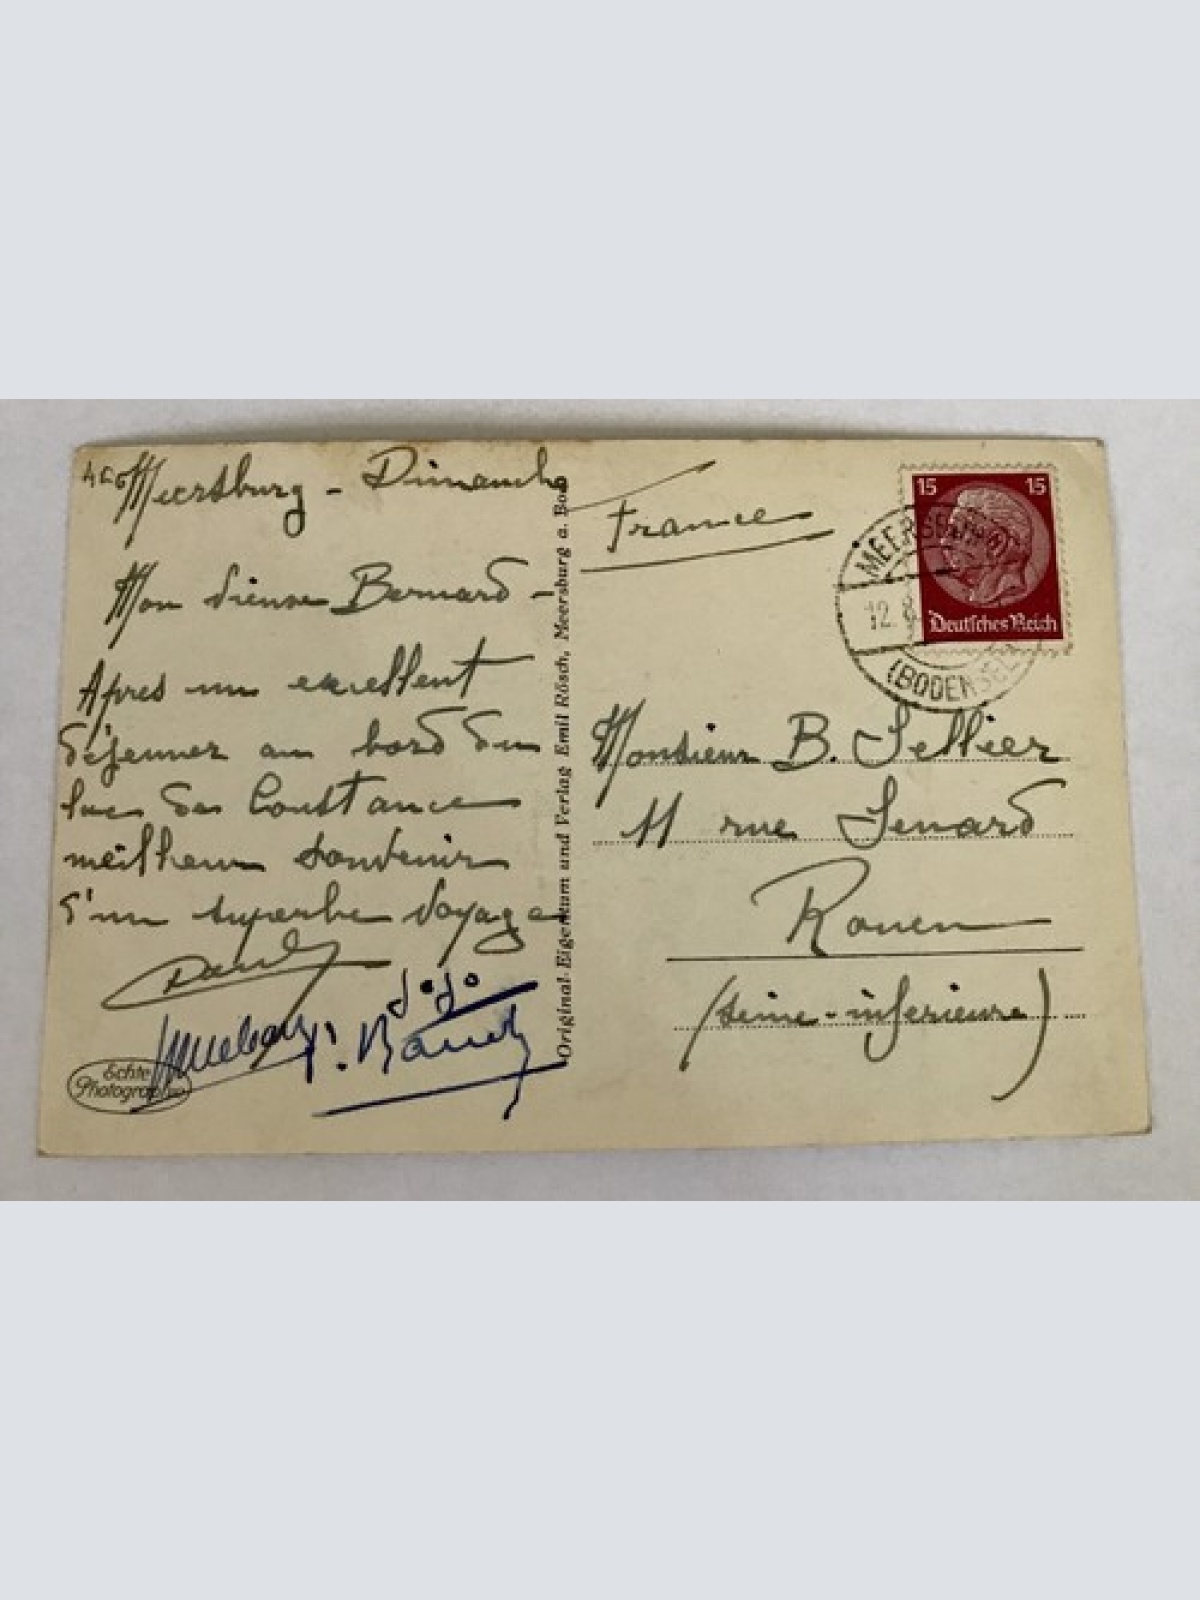 Meersburg - Dimanche
Mon vieux Bernard -
Après un excellent
déjeuner au bord du
lac de Constance
meilleur souvenir
d'un superbe voyage
Paul
Jojo
P. Bauch
Echte
Photographie
Original-Eigentum und Verlag Emil Rösch, Meersburg a. Bod.
France
15 15
Deutsches Reich
MEERSBURG
12.
(BODENSEE)
Monsieur B. Sellier
11 rue Senard
Rouen
(Seine-inferieure)